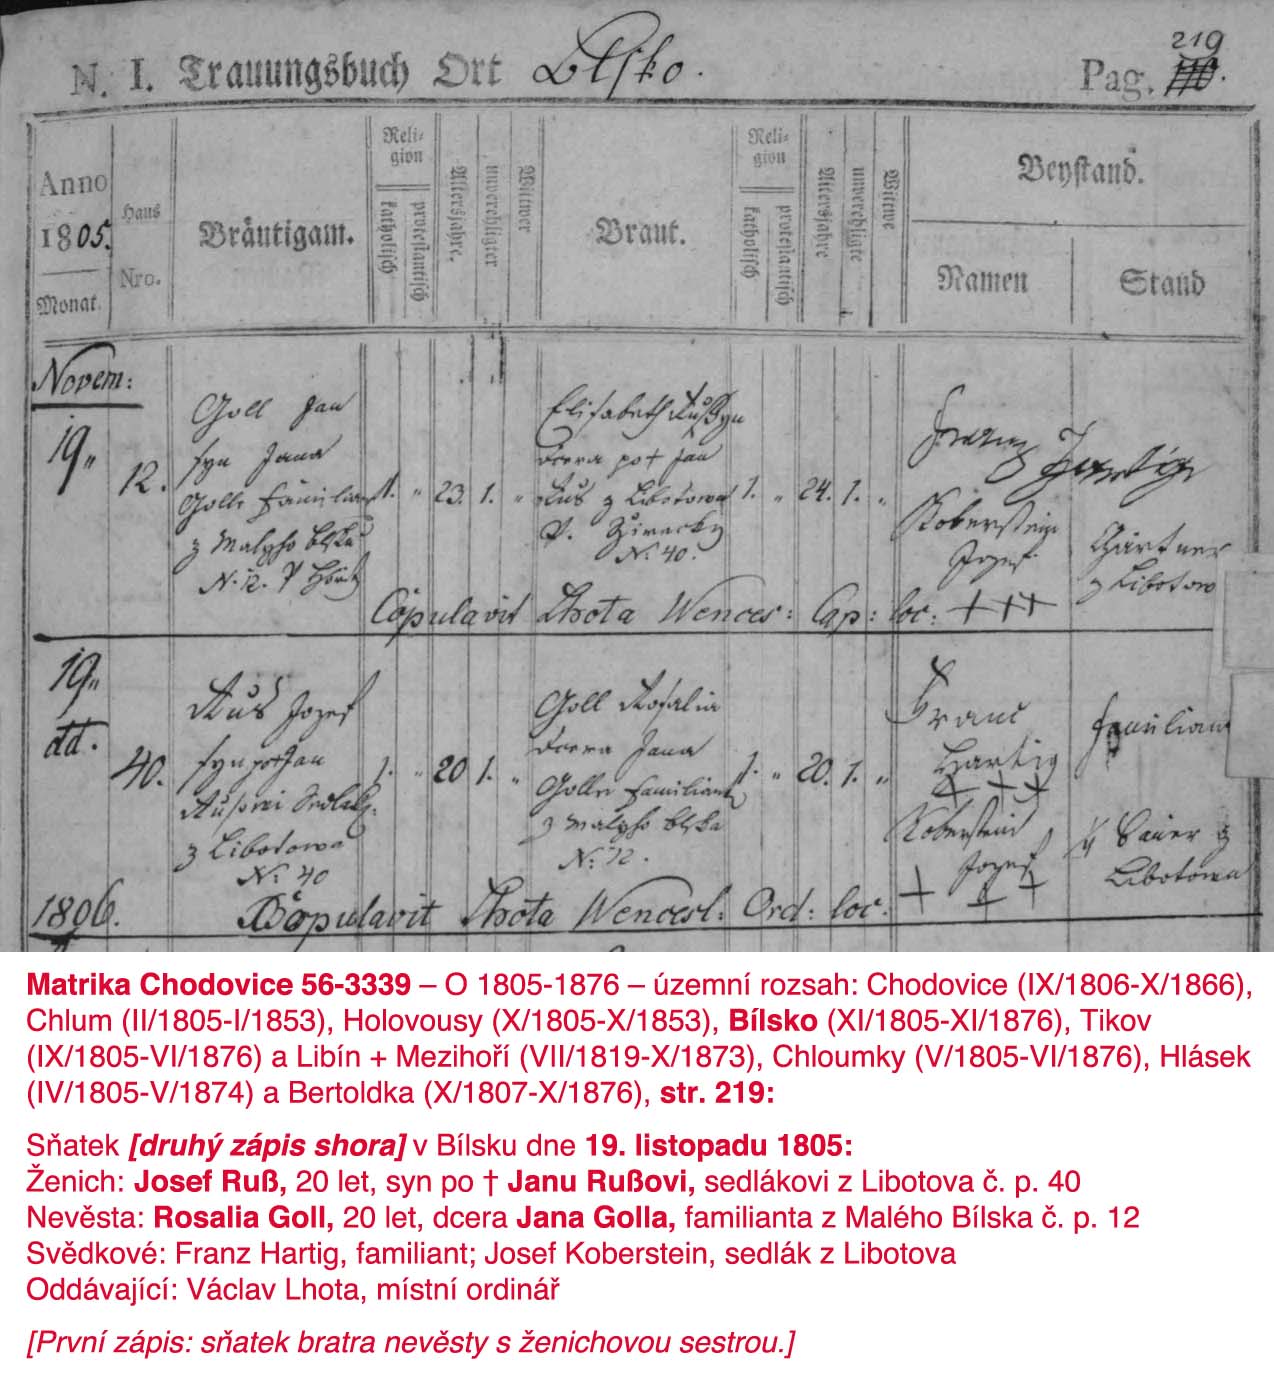 N. I. Trauungsbuch Ort Blsko. Pag. 219
Anno 1805.
Monat.
Haus Nro.
Bräutigam.
Religion
katholisch
protestantisch
Altersjahre.
unverehligter
Wittwer
Braut.
Religion
katholisch
protestantisch
Altersjahre
unverehligte
Wittwe
Beystand.
Namen
Stand
Novem:
19 12.
Goll Jan
syn Jana
Golle Familian
z Malyho Blska
N. 12.
1. " 23. 1. "
Elisabeth Rußyn
dcera po † Jan
Rus z Libotowa
N. 40.
1. " 24. 1. "
Franz Hartig
Koberstein
Jozef
Gärtner
z Libotow
Copulavit Lhota Wences: Cap: loc: +++
19 dd. 40.
Rus Jozef
syn po † Jan
z Libotowa
N. 40
1. " 20 1. "
Goll Rosalia
dcera Jana
Golle Familiant
z Malyho Blska
N. 12.
1. " 20. 1. "
Franc
Hartig
+ + +
Koberstein
Jozef
+ + +
Familiant
Bauer z
Libotowa
1806. Copulavit Lhota Wencesl: Ord: loc.
Matrika Chodovice 56-3339 – O 1805-1876 – územní rozsah: Chodovice (IX/1806-X/1866),
Chlum (II/1805-I/1853), Holovousy (X/1805-X/1853), Bílsko (XI/1805-XI/1876), Tikov
(IX/1805-VI/1876) a Libín + Mezihoří (VII/1819-X/1873), Chloumky (V/1805-VI/1876), Hlásek
(IV/1805-V/1874) a Bertoldka (X/1807-X/1876), str. 219:
Sňatek [druhý zápis shora] v Bílsku dne 19. listopadu 1805:
Ženich: Josef Ruß, 20 let, syn po † Janu Rußovi, sedlákovi z Libotova č. p. 40
Nevěsta: Rosalia Goll, 20 let, dcera Jana Golla, familianta z Malého Bílska č. p. 12
Svědkové: Franz Hartig, familiant; Josef Koberstein, sedlák z Libotova
Oddávající: Václav Lhota, místní ordinář
[První zápis: sňatek bratra nevěsty s ženichovou sestrou.]